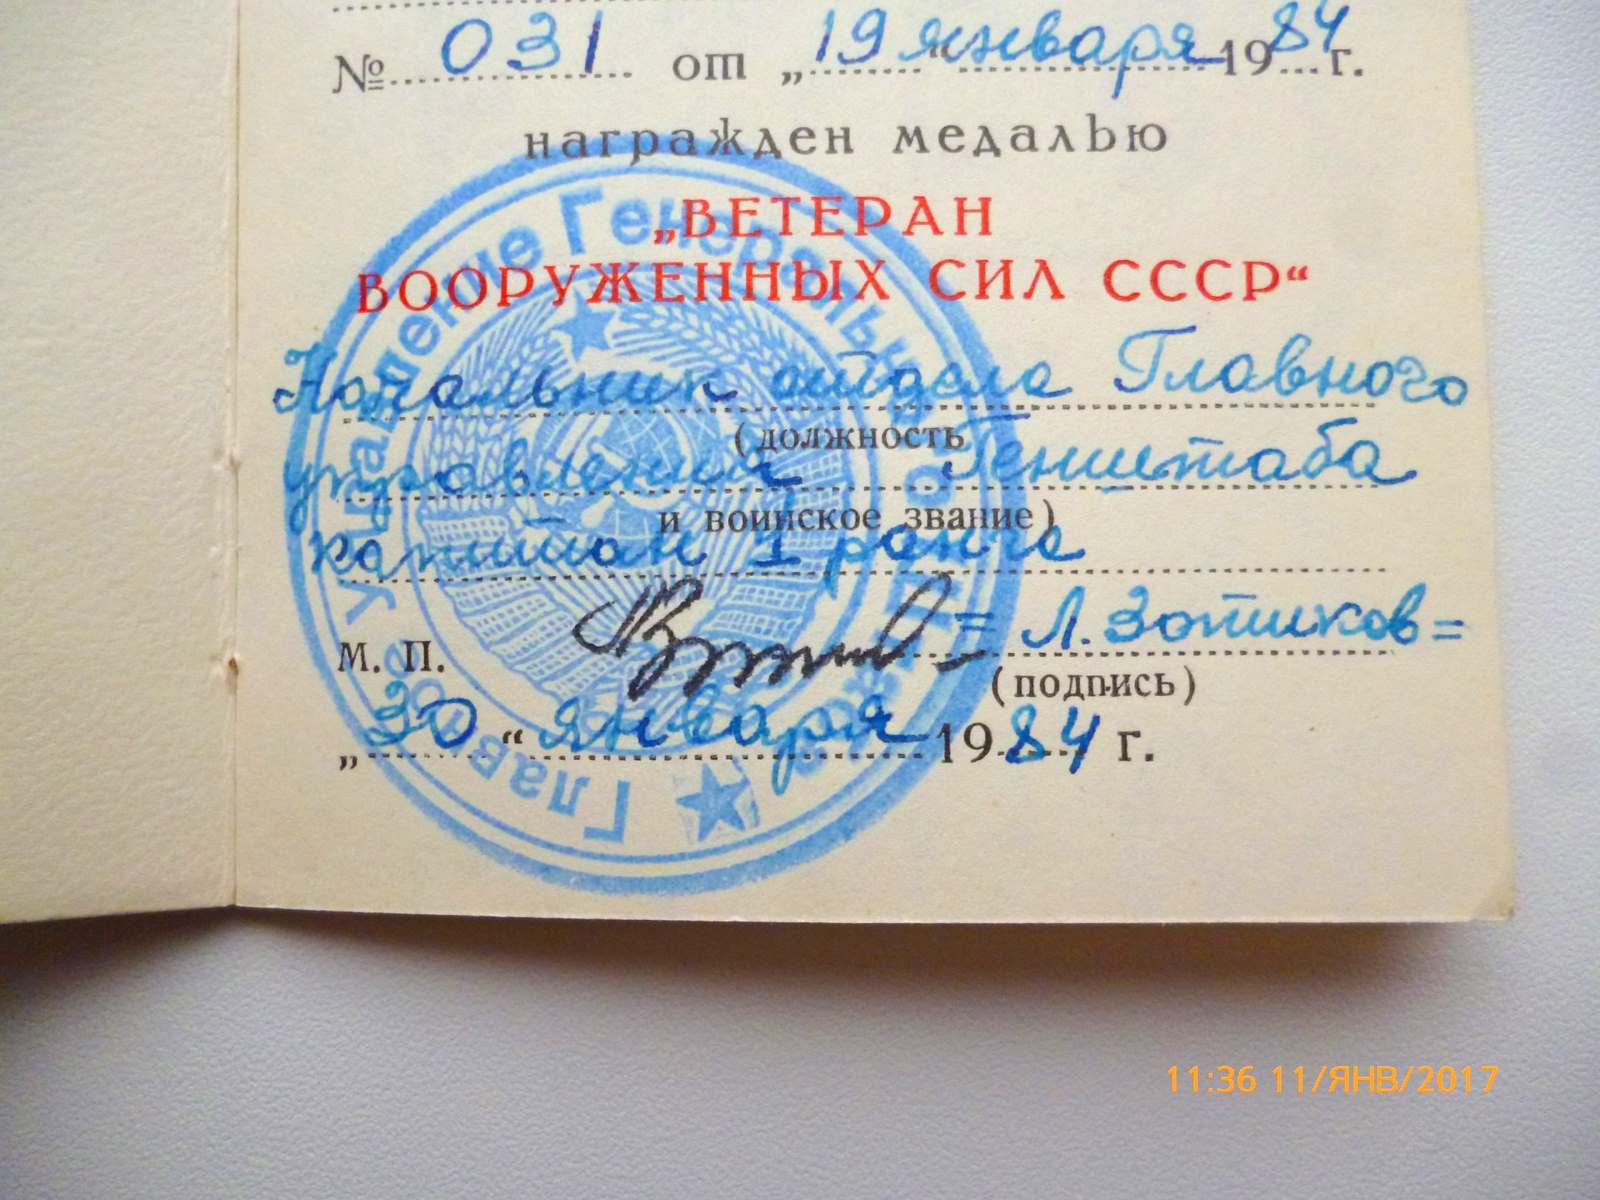 № 031 от „19“ января 1984 г.
награжден медалью
„ВЕТЕРАН
ВООРУЖЕННЫХ СИЛ СССР“
Начальник отдела Главного
(должность
управления Генштаба
и воинское звание)
капитан 1 ранга
= Л. Зотиков =
М. П.
(подпись)
„30“ января 1984 г.
Главное управление Генерального
11:36 11/ЯНВ/2017